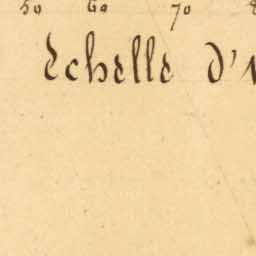 50 60 70
Echelle d'